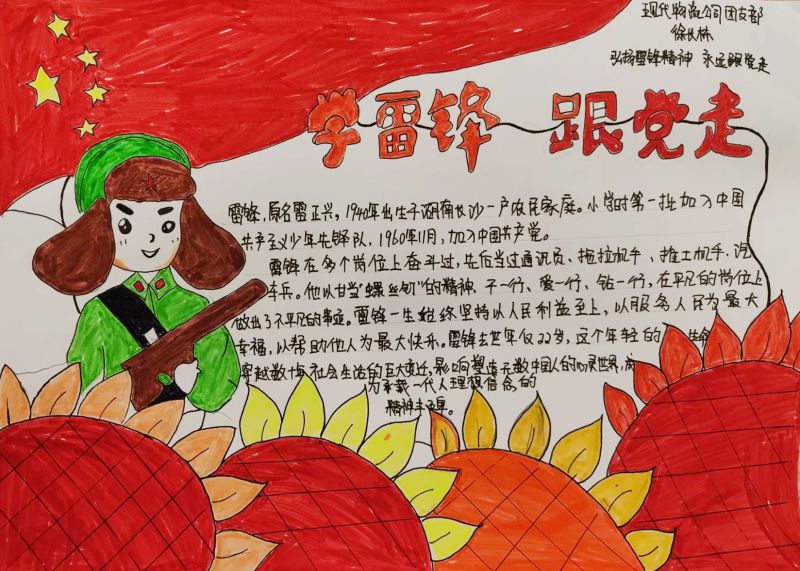 现代物流公司团支部
徐长林
弘扬雷锋精神 永远跟党走
学雷锋 跟党走
雷锋,原名雷正兴,1940年出生于湖南长沙一户农民家庭。小学时第一批加入中国
共产主义少年先锋队,1960年11月,加入中国共产党。
雷锋在多个岗位上奋斗过,先后当过通讯员、拖拉机手、推土机手、汽
车兵。他以甘当“螺丝钉”的精神,干一行、爱一行、钻一行,在平凡的岗位上
做出了不平凡的事迹。雷锋一生始终坚持以人民利益至上,以服务人民为最大
幸福,以帮助他人为最大快乐。雷锋去世年仅22岁,这个年轻的生命
穿越数十年社会生活的巨大变迁,影响塑造无数中国人的心灵世界,成
为承载一代人理想信念的
精神丰碑。